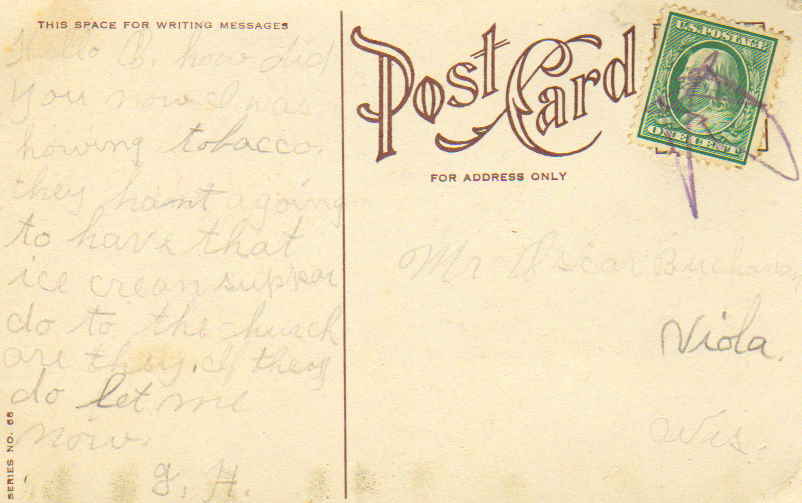 THIS SPACE FOR WRITING MESSAGES
Hello O. how did
you now I was
howing tobacco.
they haint agoing
to have that
ice crean suppor
do to the church
are they. if they
do let me
now.
G. H.
SERIES NO. 66
Post Card
FOR ADDRESS ONLY
U.S. POSTAGE
ONE CENT
Mr Oscar Buchanan
Viola.
Wis.